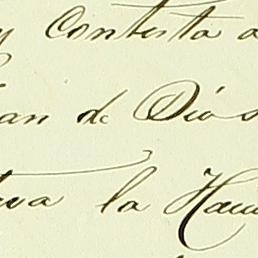 y Contesta a
an de Dios
tiva la Hau